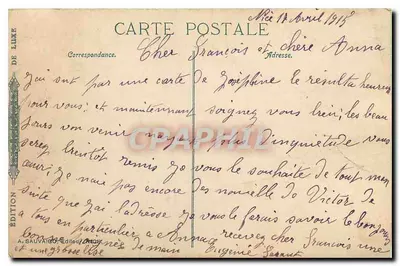 Nice 18 Avril 1915
CARTE POSTALE
Correspondance. Adresse.
Cher François et chère Anna
j'ai sut par une carte de Joséphine le résulta heureux
pour vous, et maintenant soignez vous bien, les beau
jours von venir ayez pas d'inquiétude vous
serez bientot remis je vous le souhaite de tout mon
cœur, je n'ai pas encore des nouvelle de Victor de
suite que j'ai l'adresse je vous le ferais savoir le bonjour
a tous en particulier a Anna recevez cher François une
bonne poignés de main Eugénie
et une grosse bise
ÉDITION DE LUXE
CPAPHIL